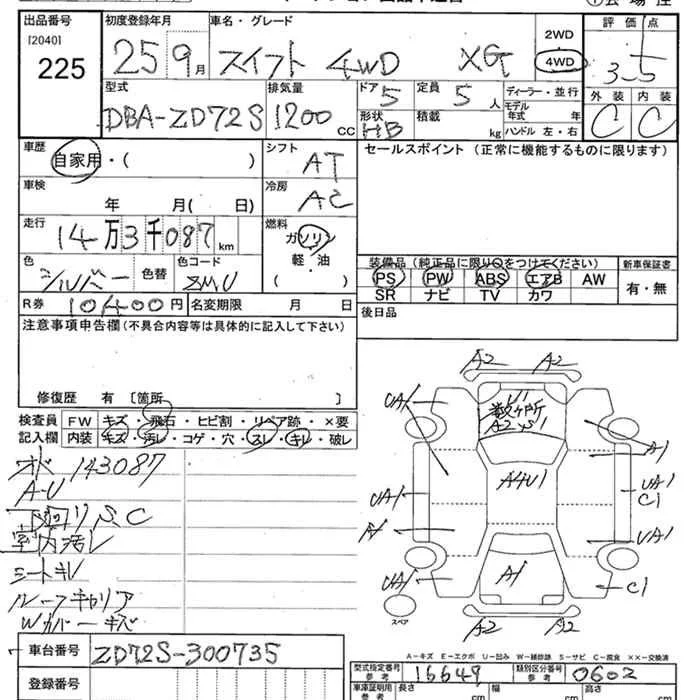 出品番号
[2040]
225
初度登録年月
25 9月
車名・グレード
スイフト 4WD XG
2WD
4WD
評価点
3.5
外装 内装
C C
型式
DBA-ZD72S
排気量
1200 CC
ドア
5
定員
5 人
形状
HB
積載
kg
ディーラー・並行
モデル
年式 年
ハンドル 左・右
車歴
自家用・( )
シフト
AT
車検
年 月( 日)
冷房
AC
走行
14万3千087 km
燃料
ガソリン
軽・油
( )
色
シルバー 色替
色コード
ZMU
R券 10400円 名変期限 月 日
セールスポイント (正常に機能するものに限ります)
装備品 (純正品に限り○をつけてください)
PS PW ABS エアB AW
SR ナビ TV カワ
新車保証書
有・無
後日品
注意事項申告欄(不具合内容等は具体的に記入して下さい)
修復歴 有 [箇所 ]
検査員
記入欄
FW キズ・飛石・ヒビ割・リペア跡・×要
内装 キズ・汚レ・コゲ・穴・スレ・キレ・破レ
143087
A-U
下回リS.C
室内汚レ
シートキレ
ルーフキャリア
Wカバーキズ
A2 A2
UA1
U1
数ヶ所
A2
S1
A1
A4U1
UA1
UA1
C1
A1
UA1
UA1
A1
C1
スペア
A2 A2
A-キズ E-エクボ U-凹み W-補修跡 S-サビ C-腐食 ××-交換済
車台番号 ZD72S-300735
登録番号
型式指定番号
参考
16649
類別区分番号
参考
0602
車庫証明用
参考
長さ cm 幅 cm 高さ cm